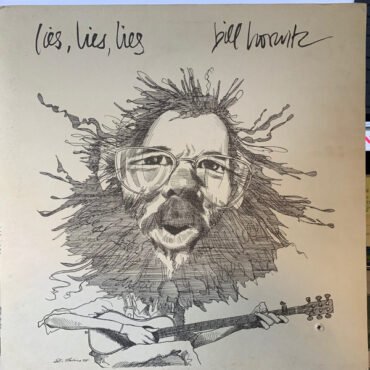 lies, lies, lies
bill horwitz